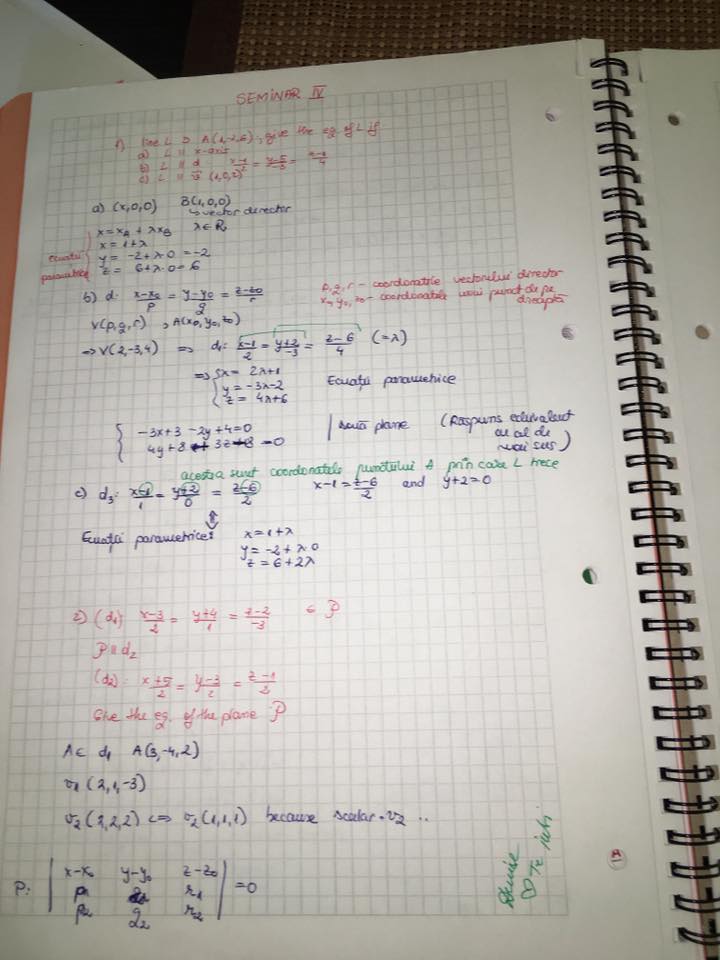 SEMINAR IV
1) line L ∋ A(1,-2,6), give the eq. of L if
a) L || x-axis
b) L || d x-1/2 = y-5/-3 = z-1/4
c) L || v (1,0,2)
a) (x,0,0) B(1,0,0)
↳ vector director
x = xA + λxB λ∈R
x = 1+λ
Ecuații
y = -2+λ·0 = -2
parametrice
z = 6+λ·0 = 6
b) d: x-x0/p = y-y0/q = z-z0/r
p,q,r - coordonatele vectorului director
x0,y0,z0 - coordonatele unui punct de pe
dreaptă
V(p,q,r), A(x0,y0,z0)
=> V(2,-3,4) => d1: x-1/2 = y+2/-3 = z-6/4 (=λ)
=> {x = 2λ+1
y = -3λ-2 Ecuații parametrice
z = 4λ+6
{ -3x+3 -2y+4=0 | două plane (Răspuns echivalent
4y+8 + 3z-8 =0 cu al de
mai sus)
acestea sunt coordonatele punctului A prin care L trece
c) d3: x-1/1 = y+2/0 = z-6/2 x-1 = z-6/2 and y+2=0
⇕
Ecuații parametrice: x = 1+λ
y = -2+λ·0
z = 6+2λ
2) (d1) x-3/2 = y+4/1 = z-2/-3 ∈ P
P || d2
(d2): x+5/2 = y-3/2 = z-1/2
Give the eq. of the plane P
A∈ d1 A(3,-4,2)
v1 (2,1,-3)
v2 (2,2,2) <=> v2 (1,1,1) because scalar·v2 ..
P: | x-x0 y-y0 z-z0 | =0
p1 q1 r1
p2 q2 r2
Denise
♡ Te iubi.